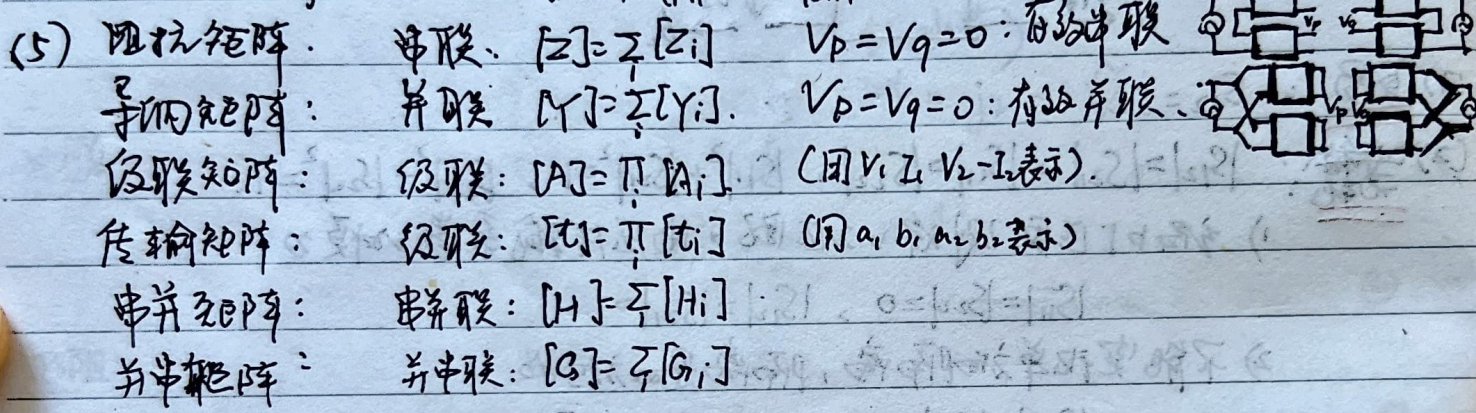 (5) 阻抗矩阵. 串联. [Z]=Σi[Zi] Vp=Vq=0: 有效串联 Vp Vq
导纳矩阵: 并联 [Y]=Σi[Yi]. Vp=Vq=0: 有效并联. Vp
级联矩阵: 级联: [A]=∏i[Ai]. (用V1 I1 V2 -I2表示).
传输矩阵: 级联: [t]=∏i[ti] (用a1 b1 a2 b2表示)
串并矩阵: 串并联: [H]=Σi[Hi]
并串矩阵: 并串联: [G]=Σi[Gi]